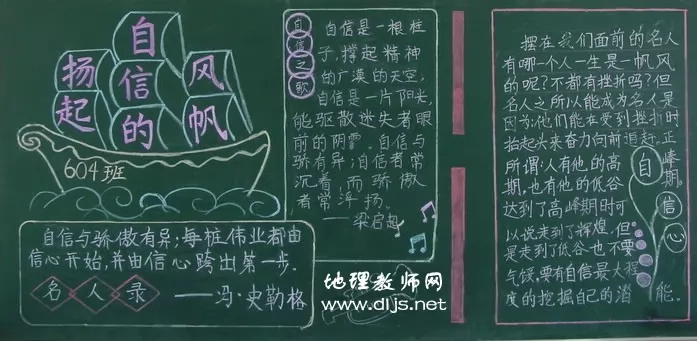 扬起
自信的
风帆
604班
自信与骄傲有异;每桩伟业都由
信心开始,并由信心跨出第一步.
名人录
——冯·史勒格
自信之歌
自信是一根柱
子,撑起精神
的广漠的天空,
自信是一片阳光,
能驱散迷失者眼
前的阴霾。自信与
骄有异;自信者常
沉着,而骄傲
者常浮扬.
——梁启超
摆在我们面前的名人
有哪一个人一生是一帆风
的呢?不都有挫折吗?但
名人之所以能成为名人是
因为:他们能在受到挫折时
抬起头来奋力向前追赶.正
所谓:人有他的高峰期.
期,也有他的低谷
达到了高峰期时可
以说走到了辉煌.但
是走到了低谷也不要
气馁,要有自信最大程
度的挖掘自己的潜能.
自信心
地理教师网
www.dljs.net